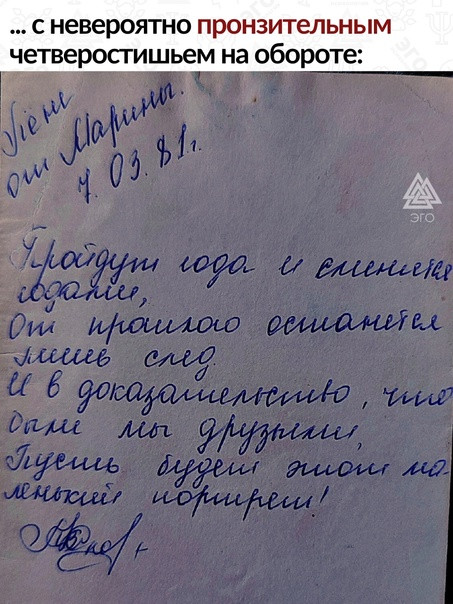 ... с невероятно пронзительным
четверостишьем на обороте:
Лене
от Марины.
7. 03. 81г.
ЭГО
Пройдут года и сменятся
годами,
От прошлого останется
лишь след.
И в доказательство, что
были мы друзьями,
Пусть будет этот ма-
ленький портрет!